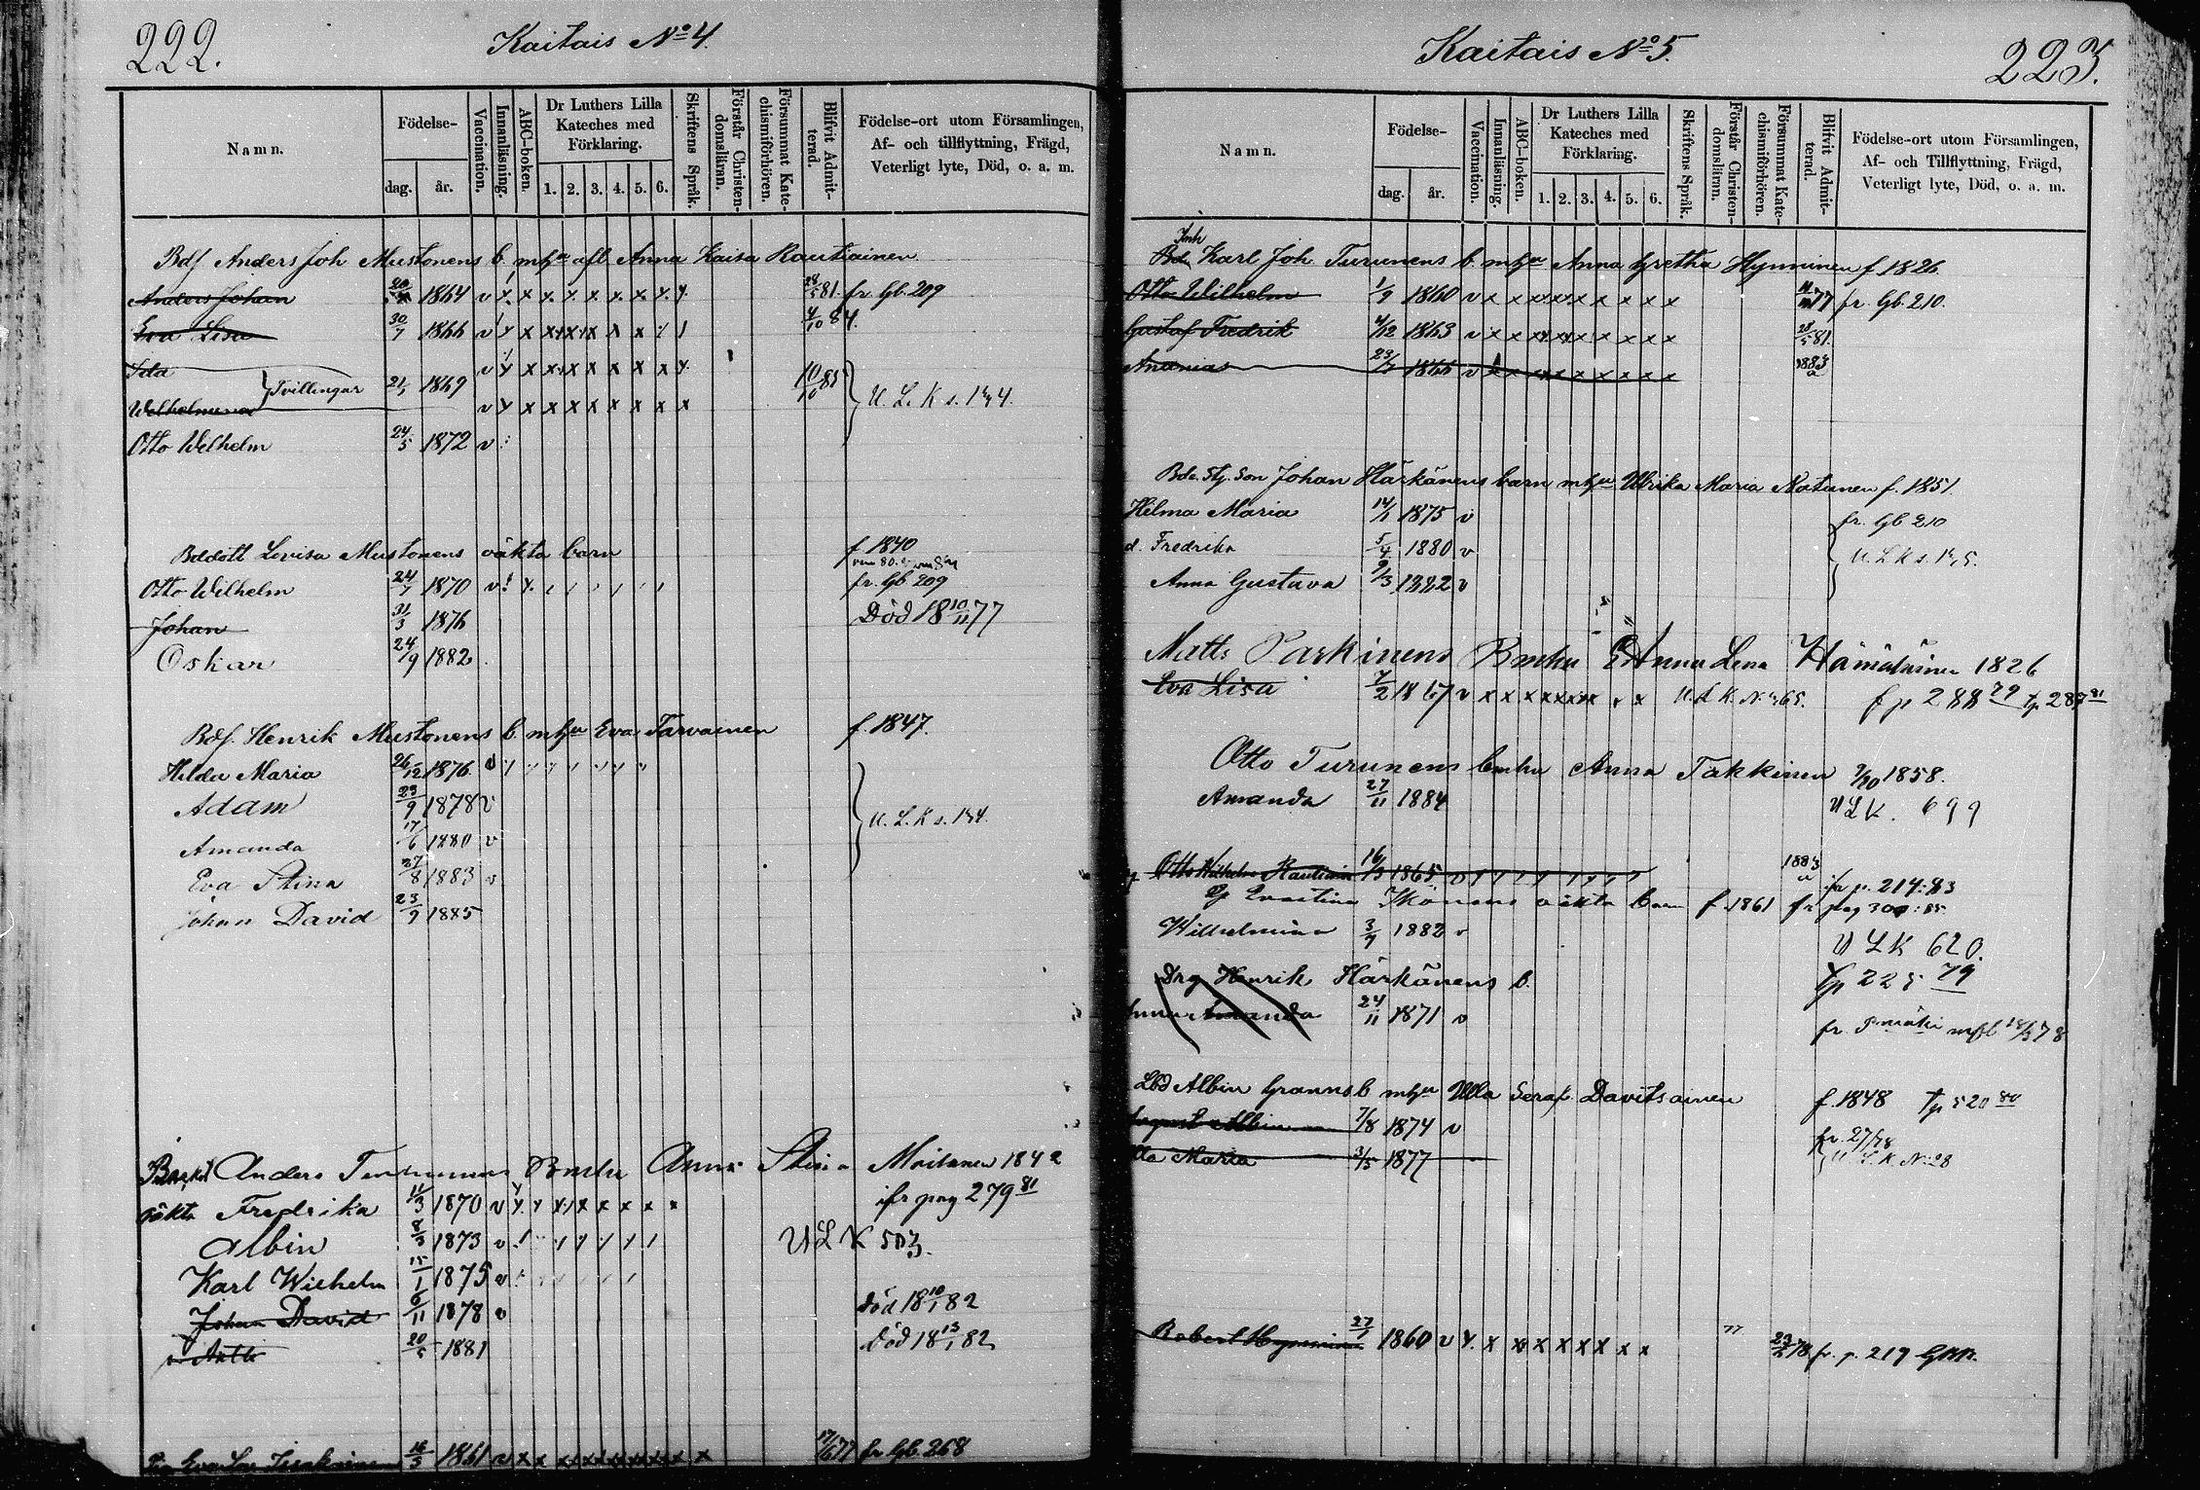 222.
Kaitais No 4.
Namn.
Födelse-
dag.
år.
Vaccination.
Innanläsning.
ABC-boken.
Dr Luthers Lilla
Kateches med
Förklaring.
1. 2. 3. 4. 5. 6.
Skriftens Språk.
Förstår Christen-
domsläran.
Försummat Kate-
chismiförhören.
Blifvit Admit-
terad.
Födelse-ort utom Församlingen,
Af- och tillflyttning, Frägd,
Veterligt lyte, Död, o. a. m.
Bdf Anders Joh Mustonens b. mhu afl Anna Kaisa Rautiainen
Anders Johan 1864 v x x x x x x x 81. fr. Gb. 209
Eva Lisa 30/7 1866 v x x x x x x x 4/10 84.
Ida
Tvillingar 21/1 1869 10/10 85
Welhelmina U. L. K s.
Otto Welhelm 24/5 1872 v
Bdedott Lovisa Mustonens oäkta barn f 1840
Otto Wilhelm 24/7 1870 v fr. Gb. 209
Johan 31/3 1876 Död 18 10/11 77
Oskar 24/9 1882
Bdf. Henrik Mustonens b. mhu Eva Tarvainen f. 1847.
Hilda Maria 26/12 1876 v
Adam 23/9 1878 v
Amanda 17/6 1880 v U. L. K s.
Eva Stina 27/8 1883 v
Johan David 23/9 1885
Anders Bmhu Anna Stina Moilanen 1842
oäkta Fredrika 11/3 1870 v x x x x x x x ifr pag 279 81
Albin 8/3 1873 v U L K 503.
Karl Wilhelm 15/1 1875 v
Johan David 6/11 1878 v död 18 10/1 82
Antti 20/5 1881 död 18 13/1 82
1861 v x x x x x x x x x 17/6 77 fr Gb. 268
223.
Kaitais No 5.
Namn.
Födelse-
dag.
år.
Vaccination.
Innanläsning.
ABC-boken.
Dr Luthers Lilla
Kateches med
Förklaring.
1. 2. 3. 4. 5. 6.
Skriftens Språk.
Förstår Christen-
domsläran.
Försummat Kate-
chismiförhören.
Blifvit Admit-
terad.
Födelse-ort utom Församlingen,
Af- och Tillflyttning, Frägd,
Veterligt lyte, Död, o. a. m.
Inh
Karl Joh. Turunens b. mhu Anna Gretha Hynninen f. 1826
Otto Wilhelm 1/9 1860 v x x x x x x x x x 77 fr. Gb. 210.
Gustaf Fredrik 4/12 1863 v x x x x x x x x x 28/5 81.
Ananias 1866 v x x x x x x x x 1883
Johan Härkänens barn mhu Ulrika Maria f. 1851.
Helma Maria 14/1 1875 v fr. Gb 210
Fredrika 5/4 1880 v U. L. K s.
Anna Gustava 9/3 1882 v
Matts Parkinens Bmhu Anna Lena Hämäläinen 1826
Eva Lisa 7/2 1867 v x x x x x x x U. L. K. f p 288 79 tp 287 81
Otto Turunens bmhu Anna Takkinen 9/10 1858.
Amanda 27/11 1884 U L K. 699
Otto Wilhelm Rautiainen 16/3 1865 1883 ifr p. 214:83
Ikonens oäkta barn f. 1861 fr pag 300:85
Wilhelmina 3/9 1882 v U L K 620.
Drg Henrik Härkänens b. tp 225 79
Amanda 24/11 1871 v
Lbd Albin Granns b mhu Ulla Seraf. Davitsainen f. 1848 tp 520 80
August Albin 7/8 1874 v fr. 27/78
Maria 3/5 1877 U. L. K. No 28
Robert Hynninen 27/1 1860 v x x x x x x x x x 78 fr. p. 219